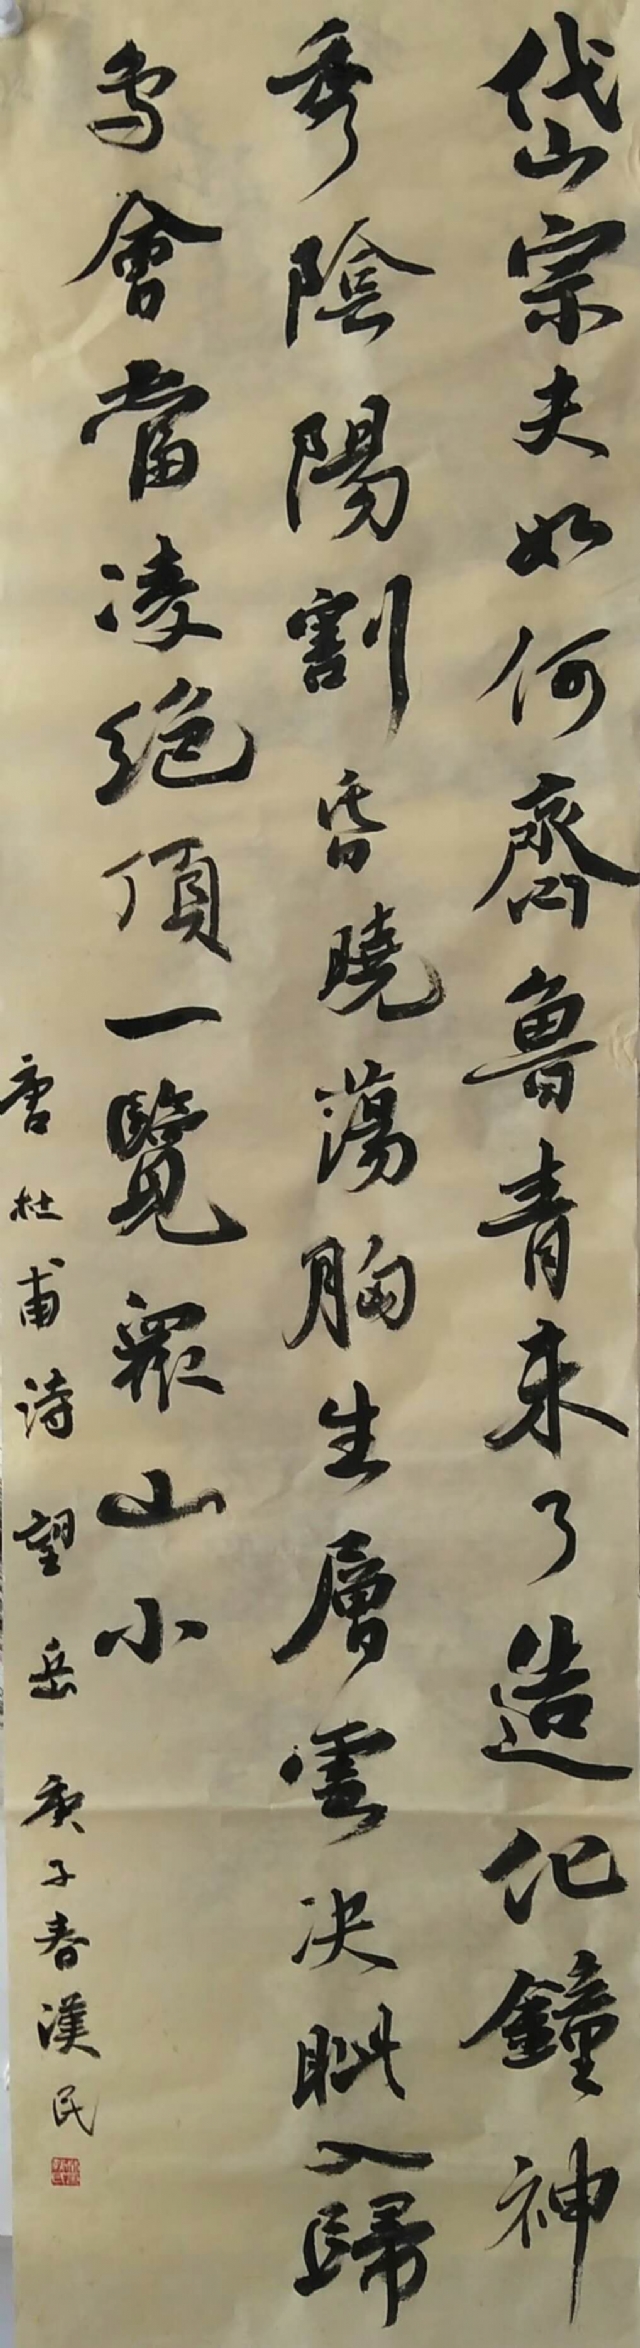 岱宗夫如何齊魯青未了造化鐘神
秀陰陽割昏曉蕩胸生層雲决眦入歸
鸟會當凌絕頂一覽衆山小
唐杜甫詩望岳庚子春漢民